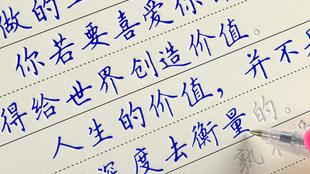 做的
你若要喜爱你
得给世界创造价值。
人生的价值，并不
深度去衡量的。